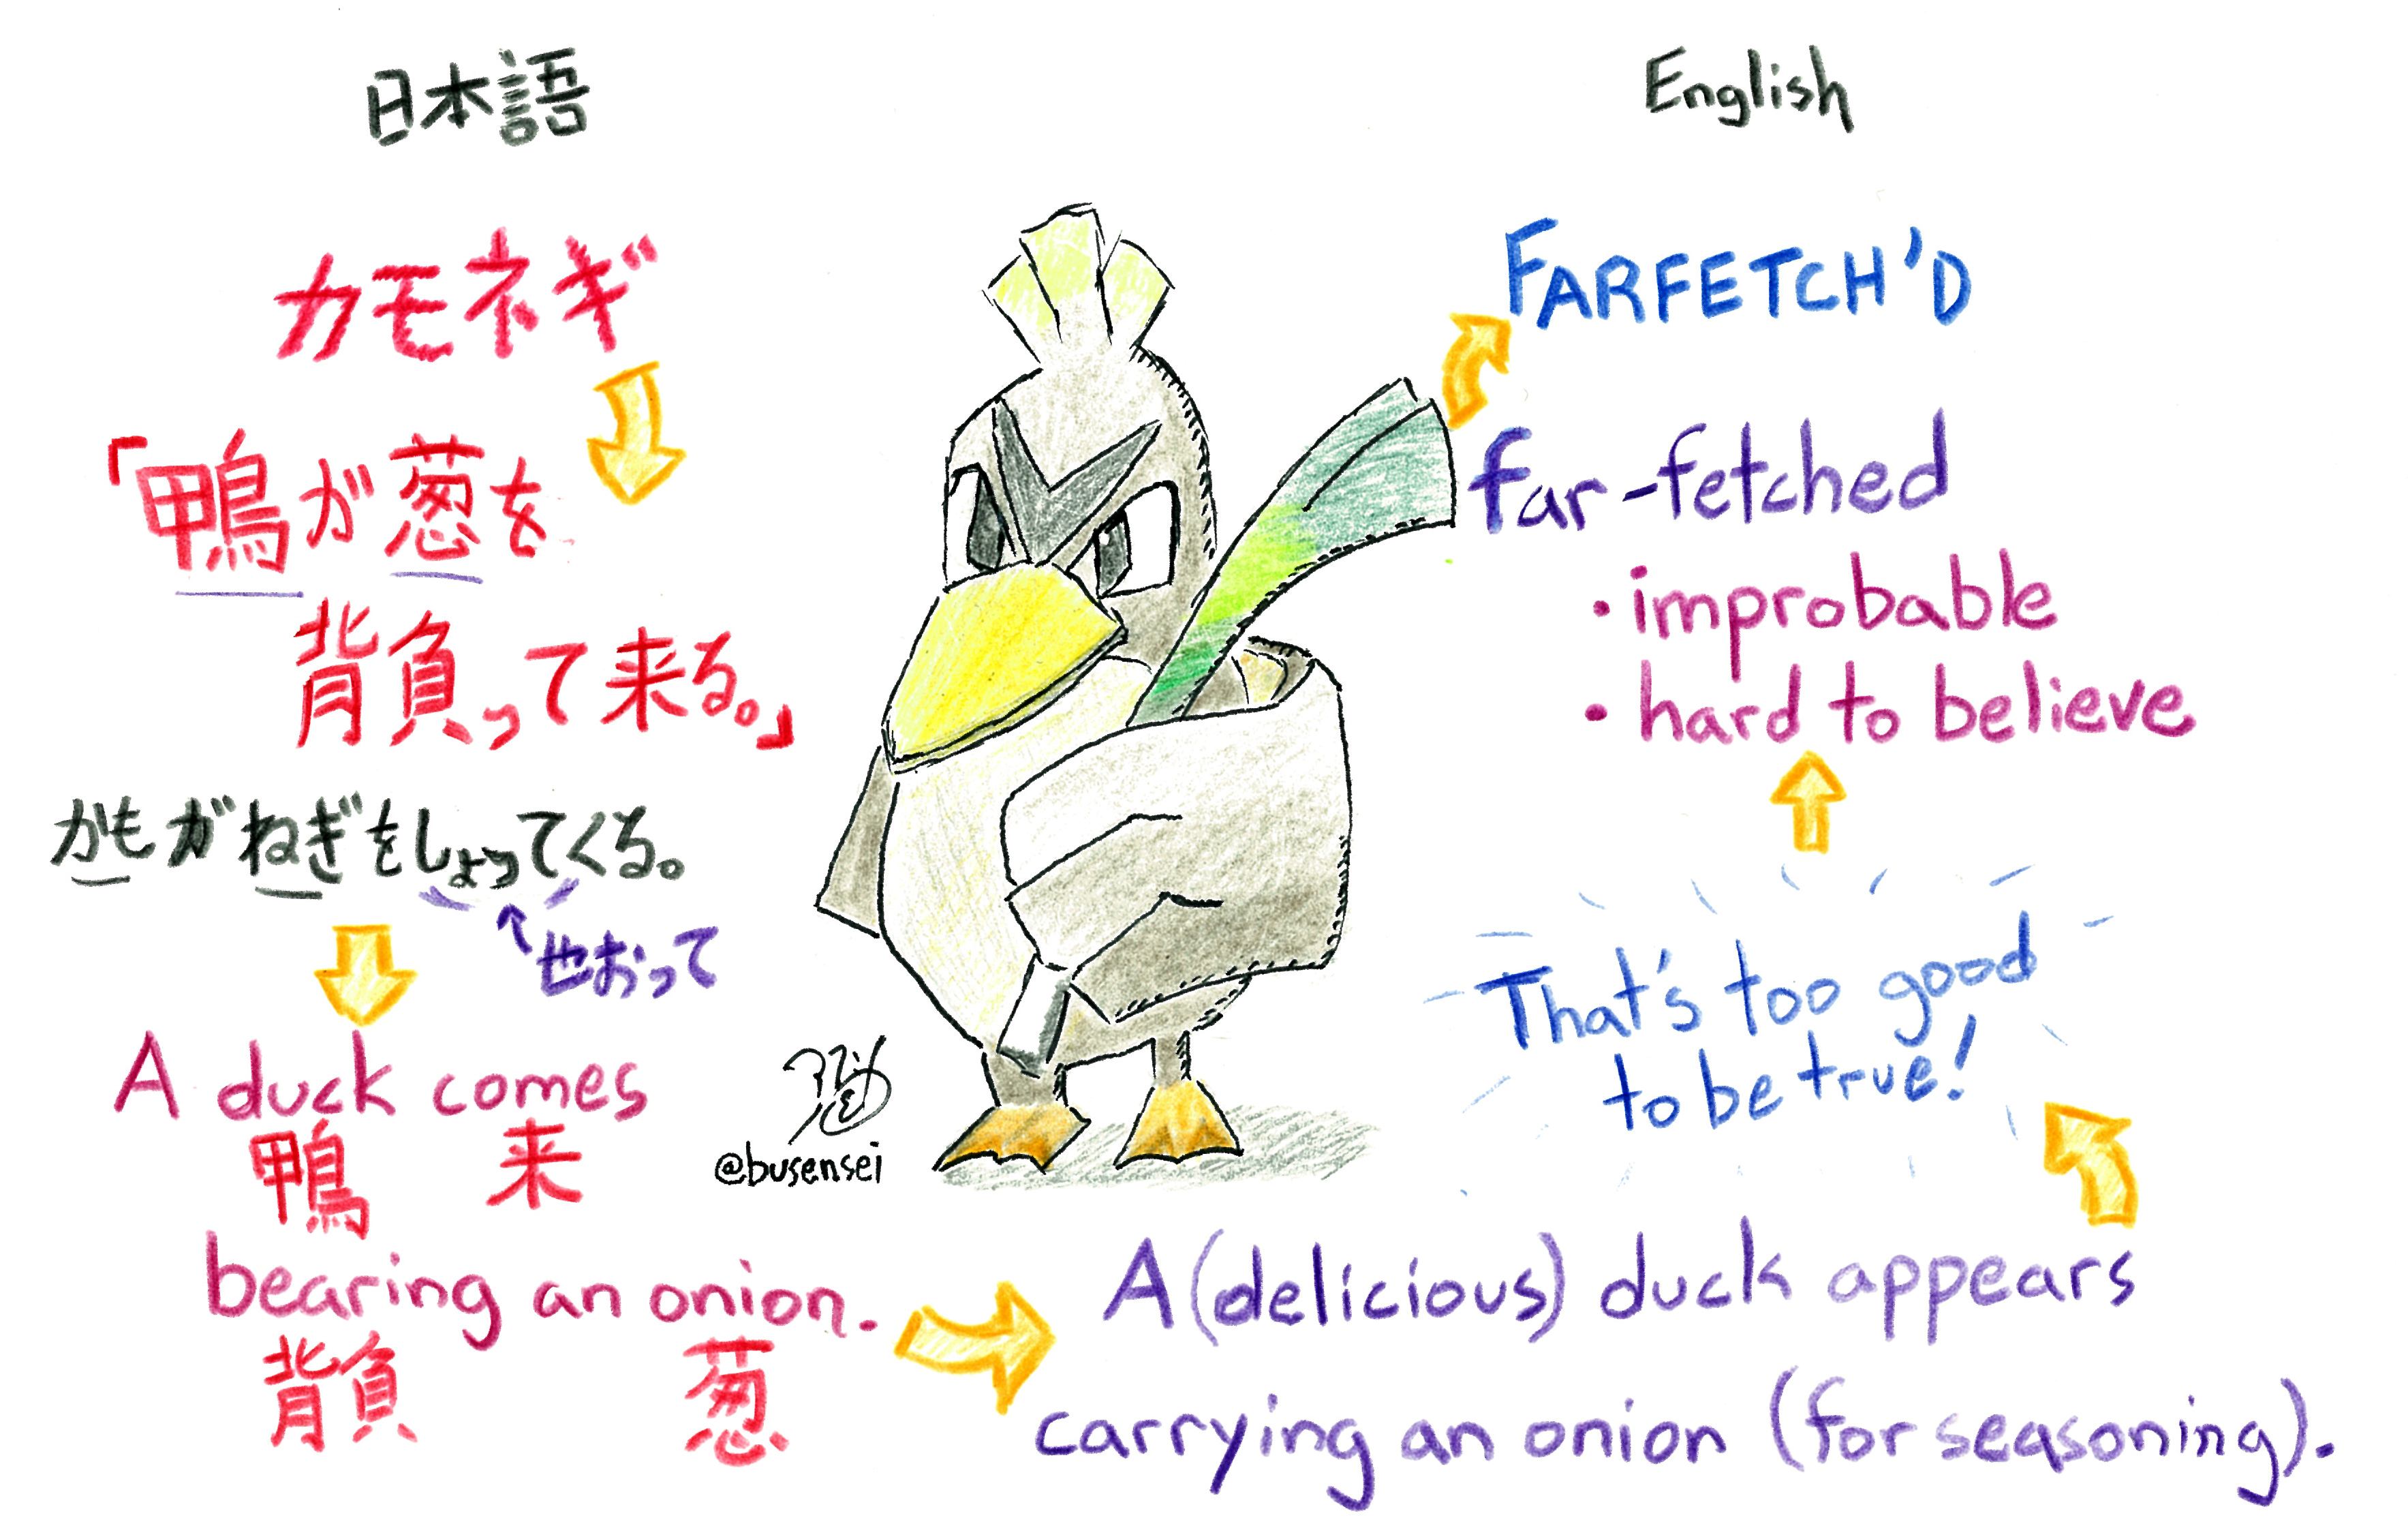 日本語
カモネギ
「鴨が葱を
背負って来る。」
かもがねぎをしょってくる。
せおって
A duck comes
鴨 来
bearing an onion.
背負 葱
@busensei
English
FARFETCH'D
far-fetched
• improbable
• hard to believe
That's too good
to be true!
A (delicious) duck appears
carrying an onion (for seasoning).